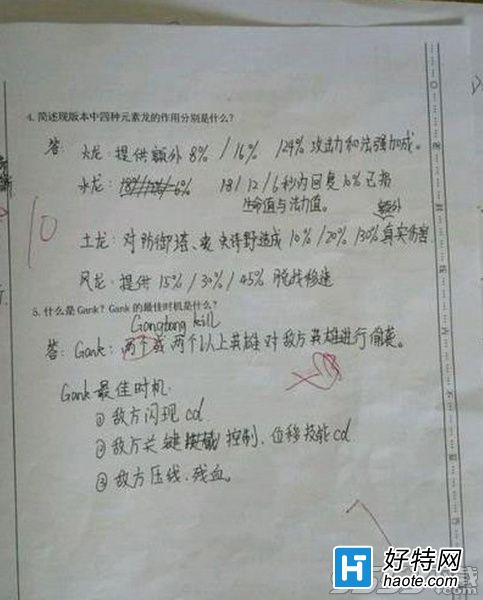 4. 简述现版本中四种元素龙的作用分别是什么?
答: 火龙: 提供额外 8% / 16% / 24% 攻击力和法强加成。
水龙: 18 / 12 / 6 秒内回复 10% 已损
生命值与法力值。
额外
土龙: 对防御塔、史诗野造成 10% / 20% / 30% 真实伤害
10
风龙: 提供 15% / 30% / 45% 脱战移速
5. 什么是 Gank? Gank 的最佳时机是什么?
Gangbang kill
答: Gank: 两个或两个以上英雄对敌方英雄进行偷袭。
Gank 最佳时机:
① 敌方闪现 cd
② 敌方关键控制、位移技能 cd
③ 敌方压线、残血。
7
好特网
haote.com